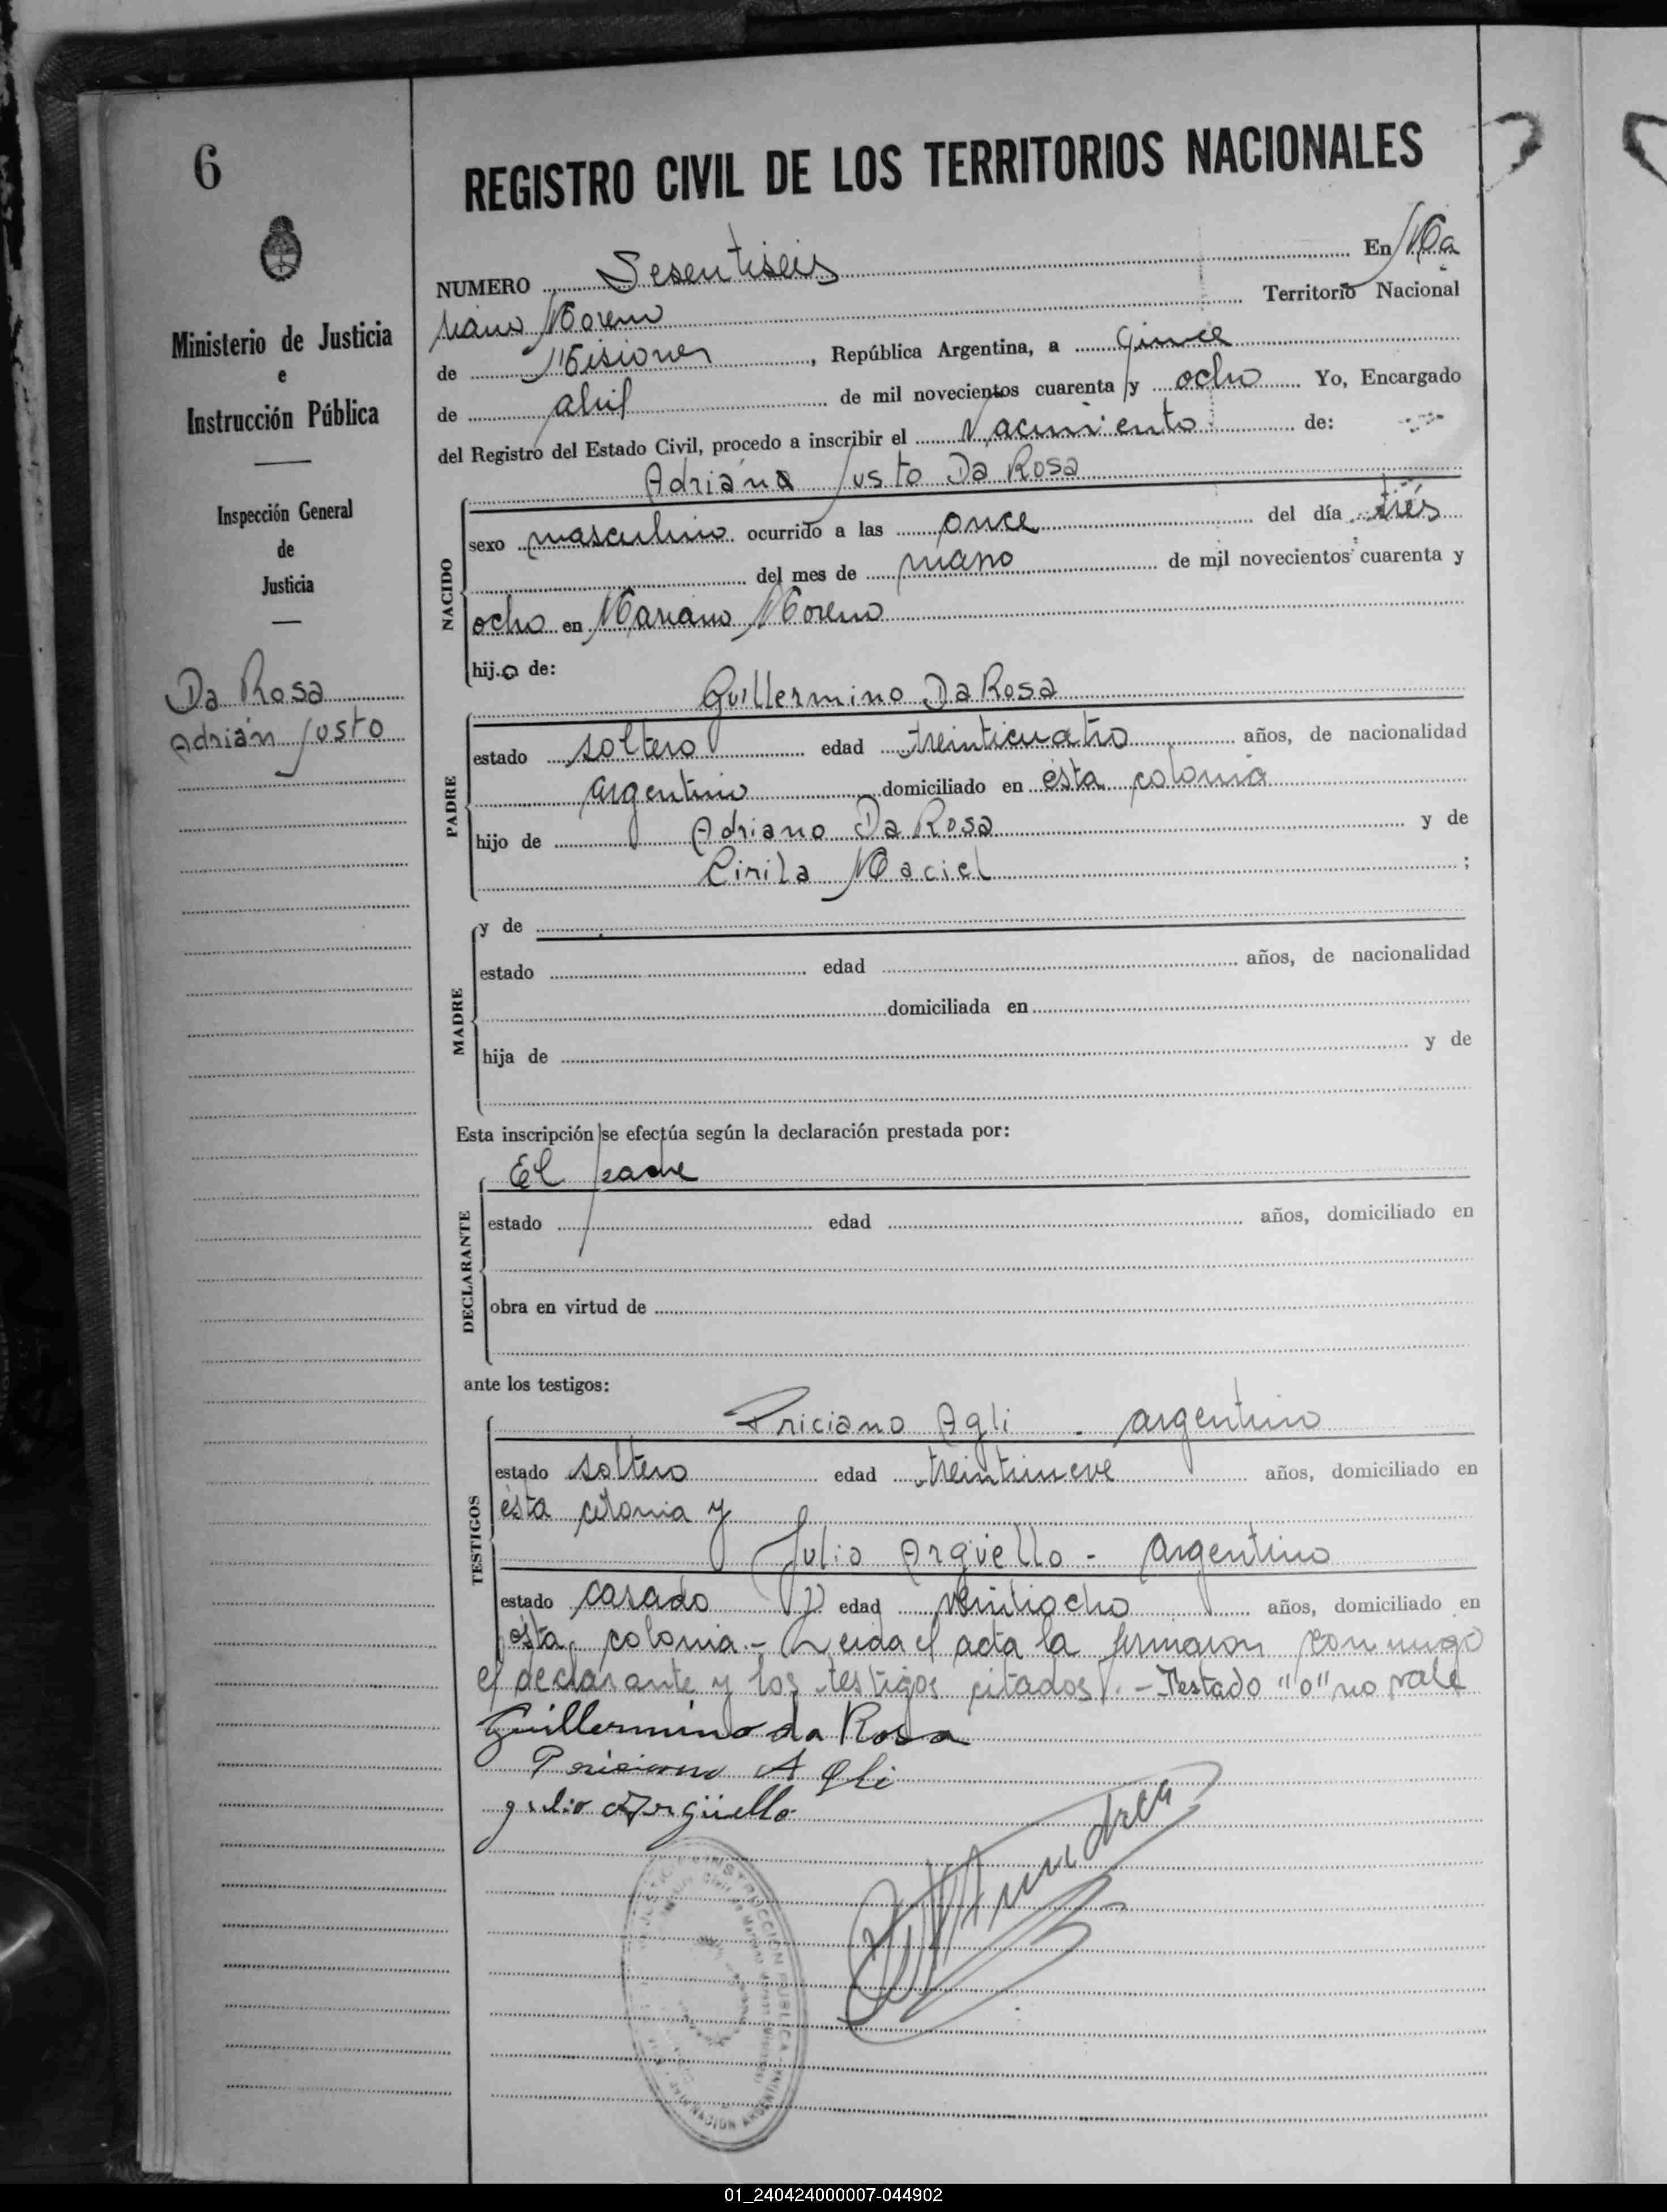 6
REGISTRO CIVIL DE LOS TERRITORIOS NACIONALES
NUMERO Sesentiseis En Ma
riano Moreno Territorio Nacional
de Misiones, República Argentina, a quince
de abril de mil novecientos cuarenta y ocho Yo, Encargado
del Registro del Estado Civil, procedo a inscribir el Nacimiento de:
Ministerio de Justicia
e
Instrucción Pública
Inspección General
de
Justicia
Da Rosa
Adrián Justo
NACIDO
Adriano Justo Da Rosa
sexo masculino ocurrido a las once del día trés
del mes de marzo de mil novecientos cuarenta y
ocho en Mariano Moreno
hijo de:
PADRE
Guillermino Da Rosa
estado soltero edad treinticuatro años, de nacionalidad
argentino domiciliado en ésta colonia
hijo de Adriano Da Rosa y de
Cirila Maciel ;
MADRE
y de
estado edad años, de nacionalidad
domiciliada en
hija de y de
Esta inscripción se efectúa según la declaración prestada por:
DECLARANTE
El padre
estado edad años, domiciliado en
obra en virtud de
ante los testigos:
TESTIGOS
Priciano Agli - argentino
estado soltero edad treintinueve años, domiciliado en
ésta colonia y
Julio Argüello - Argentino
estado casado edad veintiocho años, domiciliado en
ésta colonia.- Leida el acta la firmaron conmigo
el declarante y los testigos citados.- Testado "o" no vale
Guillermino da Rosa
Prisiano Agli
Julio Argüello
INSTRUCCIÓN PUBLICA
01_240424000007-044902